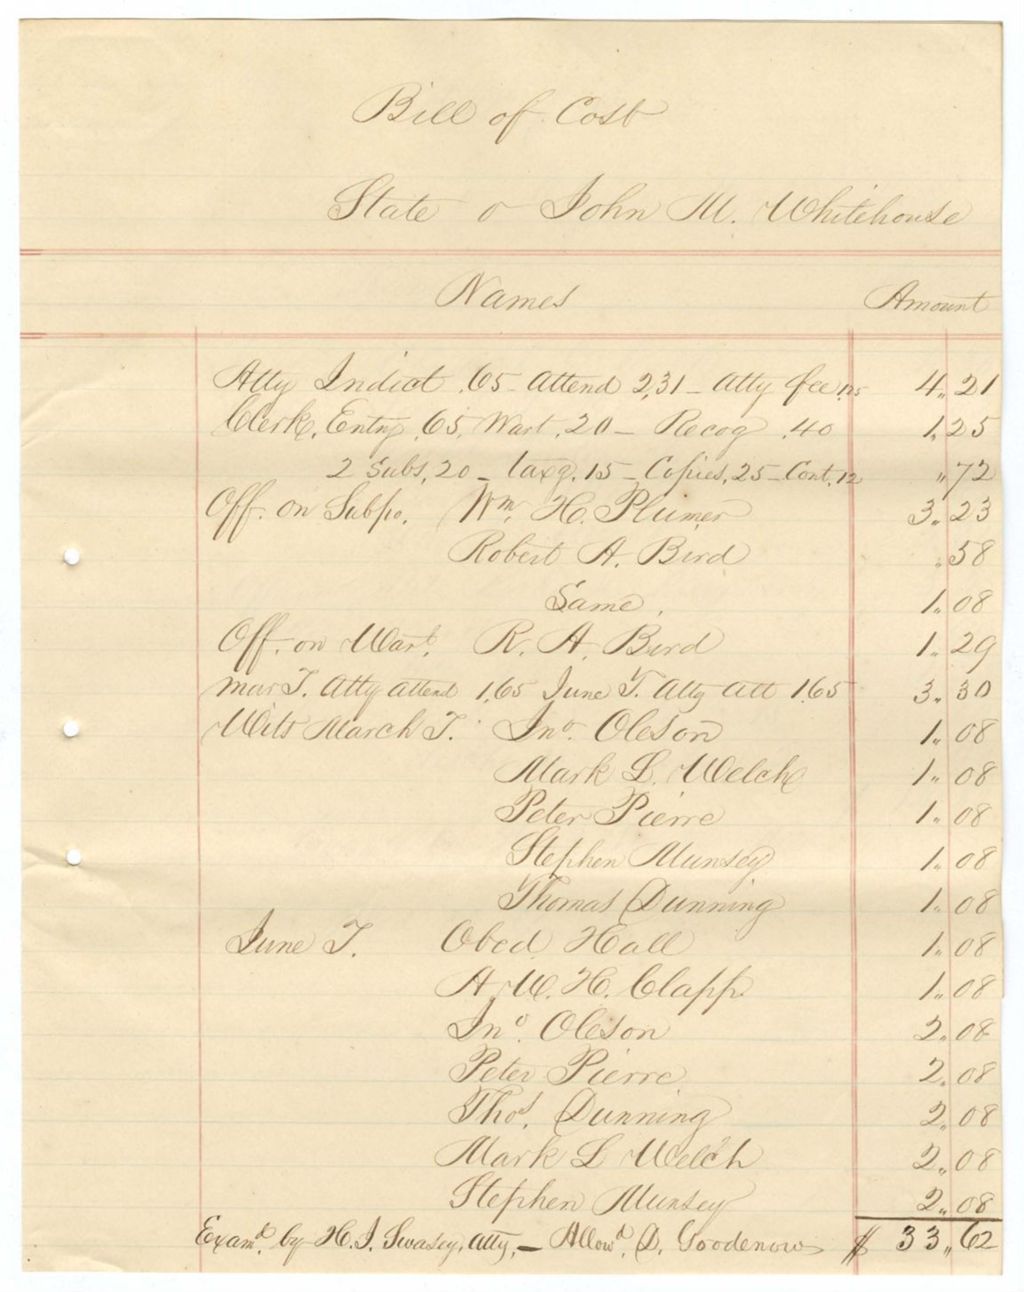 Bill of Cost
State v John M. Whitehouse
Names Amount
Atty Indict .65 - Attend 2,31 - Atty fee 1.25 4.. 21
Clerk, Entry .65, Wart. 20 - Recog .40 1.. 25
2 Subs, 20 - taxg. 15 - Copies, 25 - Cont. 12 .. 72
Off. on Subpo. Wm. H. Plumer 3.. 23
Robert A. Bird .. 58
Same. 1.. 08
Off. on Wart. R. A. Bird 1.. 29
Mar T. Atty attend 1.65 June T. Atty Att 1.65 3.. 30
Wits March T. Jno. Oleson 1.. 08
Mark L. Welch 1.. 08
Peter Pierre 1.. 08
Stephen Munsey 1.. 08
Thomas Dunning 1.. 08
June T. Obed Hall 1.. 08
A. W. H. Clapp. 1.. 08
Jno. Oleson 2.. 08
Peter Pierre 2.. 08
Thos. Dunning 2.. 08
Mark L Welch 2.. 08
Stephen Munsey 2.. 08
Examd. by H. J. Swasey, Atty, - Allowd. D. Goodenow $ 33.. 62